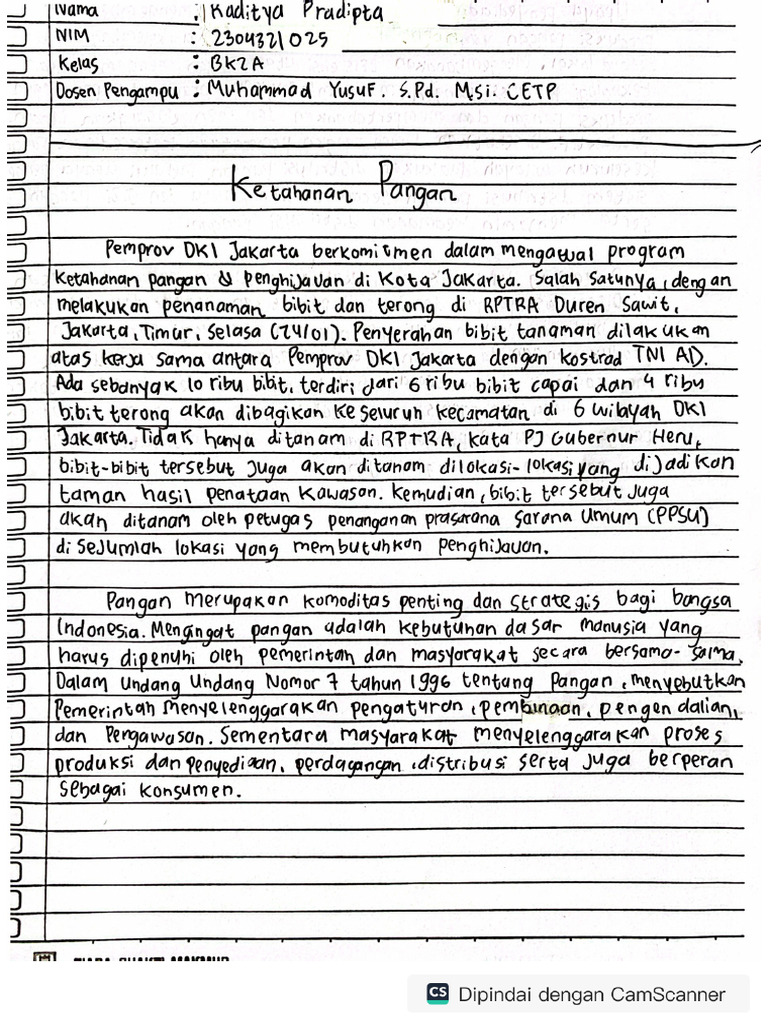 Nama : Kaditya Pradipta
NIM : 2304321025
Kelas : BK2A
Dosen Pengampu : Muhammad Yusuf. S.Pd. M.Si. CETP
Ketahanan Pangan
Pemprov DKI Jakarta berkomitmen dalam mengawal program
Ketahanan pangan & penghijauan di Kota Jakarta. Salah Satunya, dengan
melakukan penanaman bibit dan terong di RPTRA Duren Sawit,
Jakarta, Timur, Selasa (24/01). Penyerahan bibit tanaman dilakukan
atas kerja sama antara Pemprov DKI Jakarta dengan kostrad TNI AD.
Ada sebanyak 10 ribu bibit, terdiri dari 6 ribu bibit capai dan 4 ribu
bibit terong akan dibagikan ke seluruh kecamatan di 6 wilayah DKI
Jakarta. Tidak hanya ditanam di RPTRA, kata PJ Gubernur Heru,
bibit-bibit tersebut Juga akan ditanam dilokasi-lokasi yang dijadikan
taman hasil penataan Kawasan. Kemudian, bibit tersebut Juga
akan ditanam oleh petugas penanganan prasarana Sarana Umum (PPSU)
di Sejumlah lokasi yang membutuhkan penghijauan.
Pangan merupakan komoditas penting dan strategis bagi bangsa
Indonesia. Mengingat pangan adalah kebutuhan dasar manusia yang
harus dipenuhi oleh pemerintah dan masyarakat secara bersama-sama.
Dalam Undang Undang Nomor 7 tahun 1996 tentang Pangan, menyebutkan
Pemerintah menyelenggarakan pengaturan, pembinaan, pengendalian,
dan Pengawasan. Sementara masyarakat menyelenggarakan proses
produksi dan penyediaan, perdagangan, distribusi serta juga berperan
Sebagai konsumen.
CS Dipindai dengan CamScanner